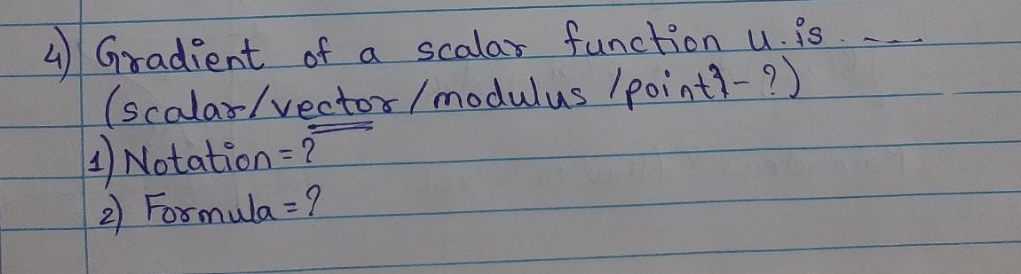 4) Gradient of a scalar function u. is. —
(scalar/vector/modulus /point?-?)
1) Notation = ?
2) Formula = ?